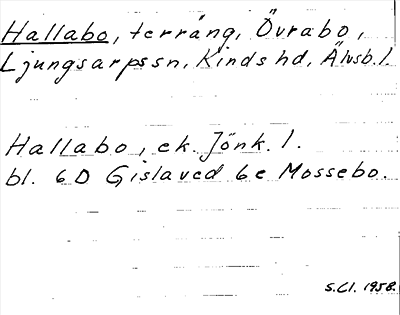 Hallabo, terräng, Övrabo,
Ljungsarps sn, Kinds hd, Älvsb. l.
Hallabo, ek. Jönk. l.
bl. 6D Gislaved 6e Mossebo.
S.Cl. 1958.